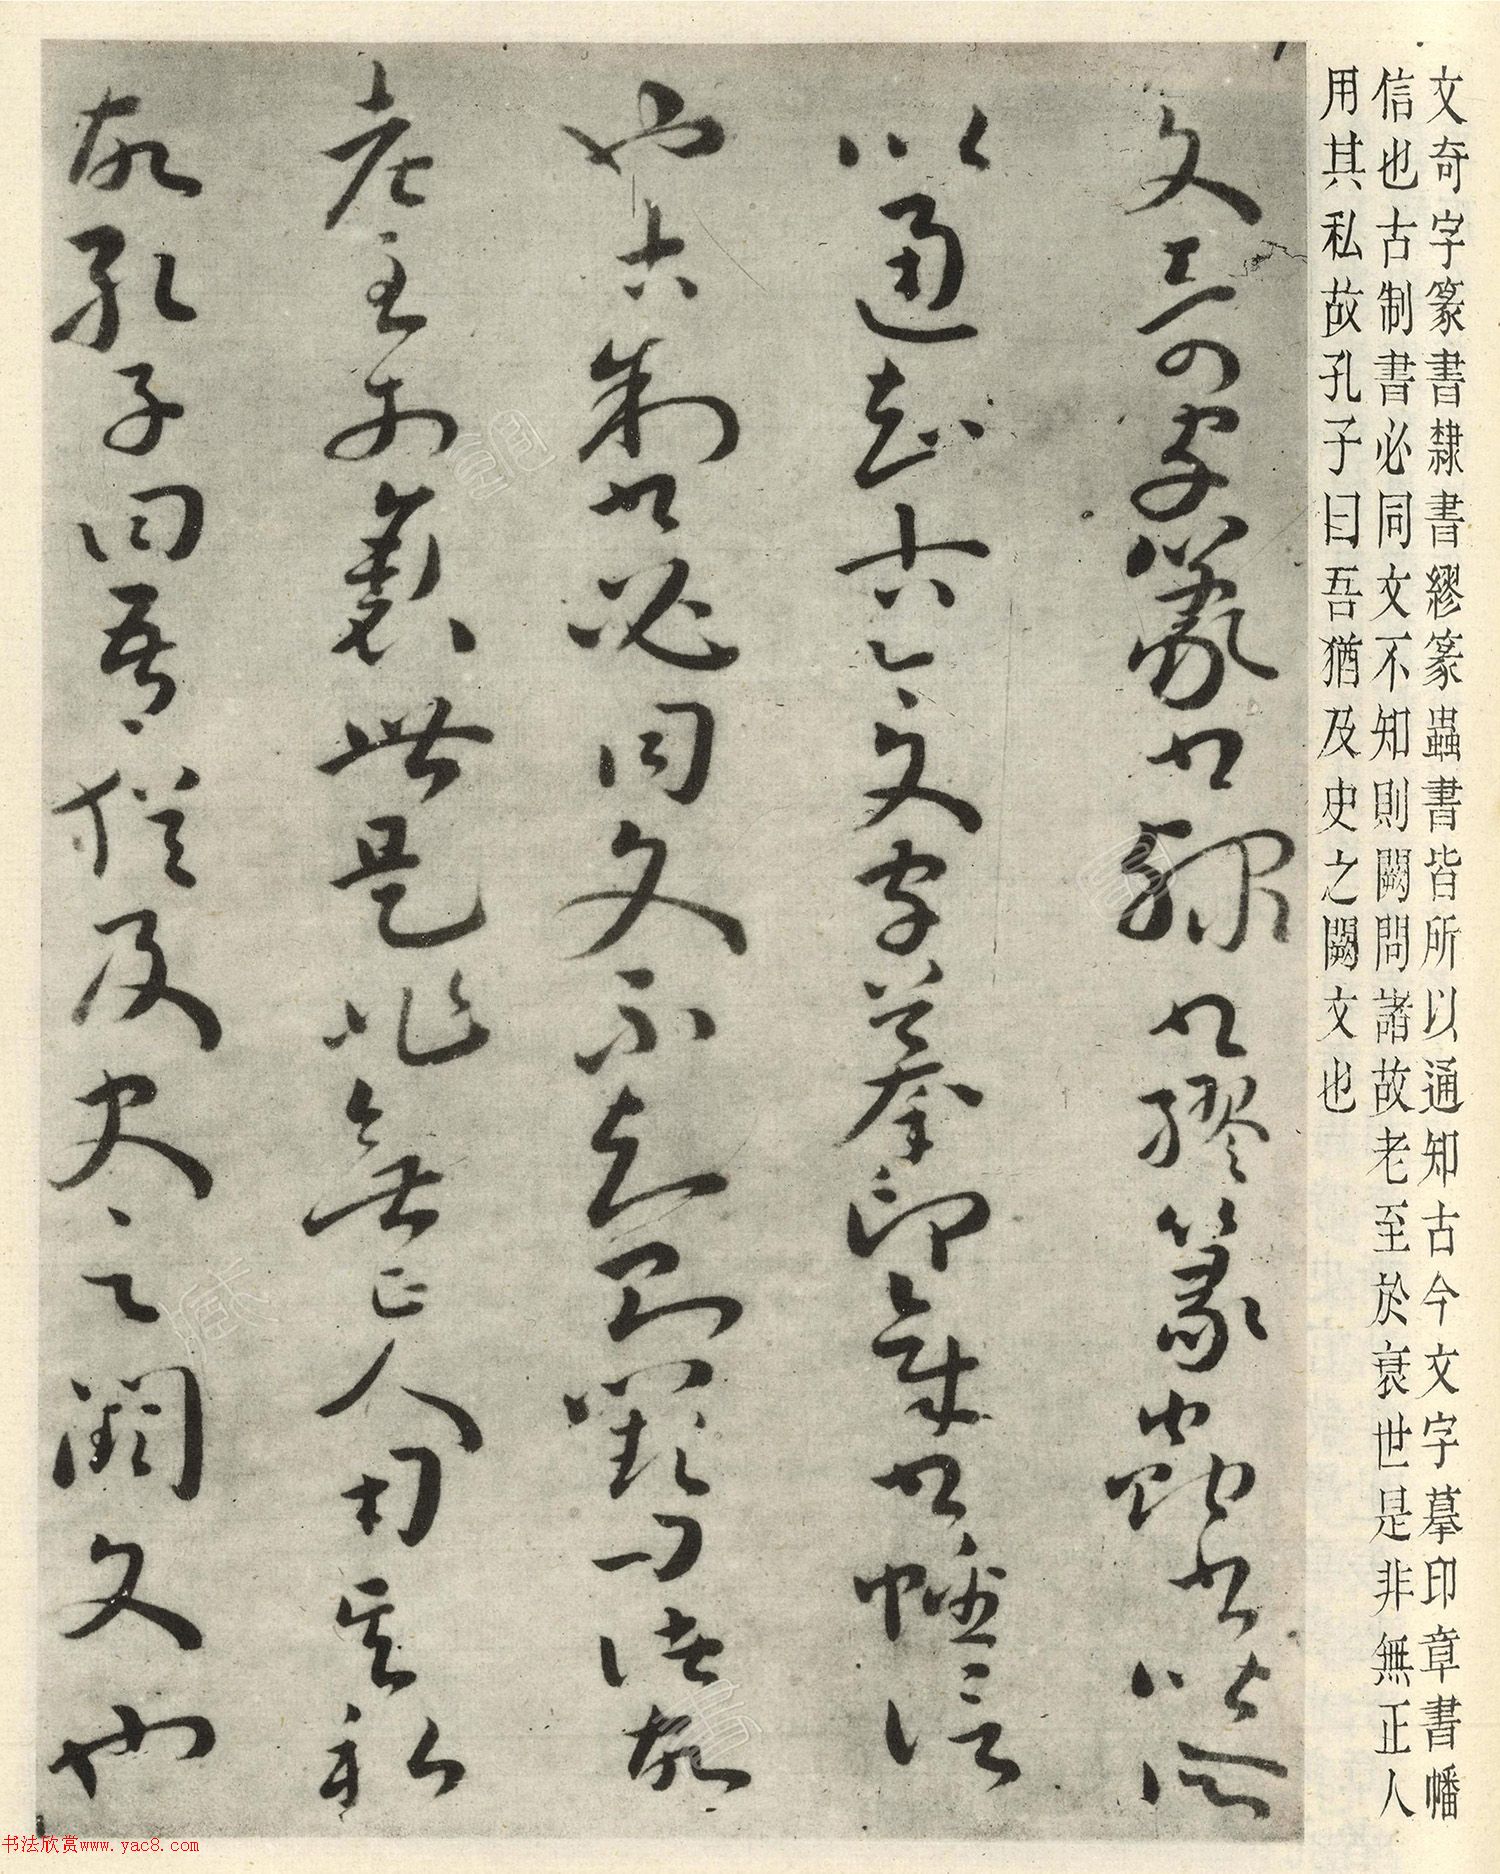 文奇字篆書隸書繆篆蟲書皆所以通知古今文字摹印章書幡
信也古制書必同文不知則闕問諸故老至於衰世是非無正人
用其私故孔子曰吾猶及史之闕文也
文奇字篆書隸書繆篆蟲書皆所
以通知古今文字摹印章書幡信
也古制書必同文不知則闕問諸故
老至於衰世是非無正人用其私
故孔子曰吾猶及史之闕文也
书法欣赏www.yac8.com